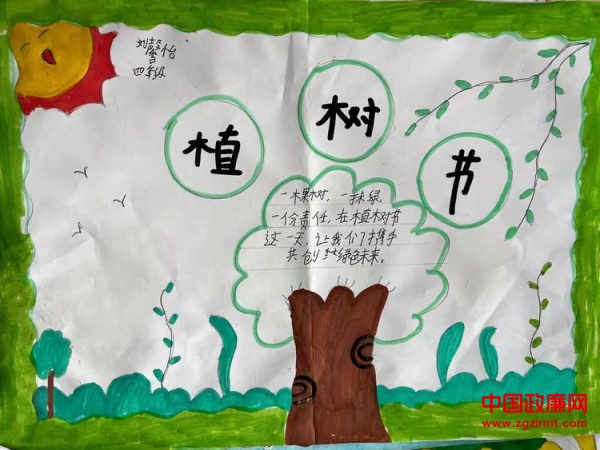 刘馨怡
四年级
植 树 节
一棵树，一抹绿，
一份责任，在植树节
这一天，让我们携手
共创造绿色未来。
中国政廉网
www.zgzlrmt.com